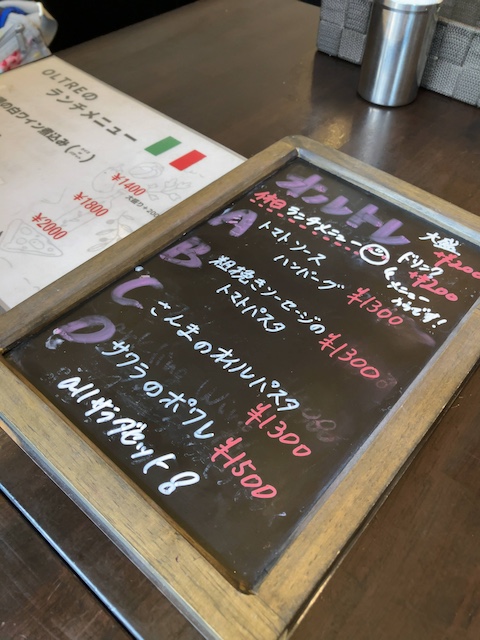 OLTREの
ランチメニュー
の白ワイン煮込み
¥1400
大盛り+200
¥1800
¥2000
オルトレ
ランチメニュー
大盛
+¥200
ドリンク
+¥200
A
トマトソース
ハンバーグ
¥1300
B
粗挽きソーセージの
トマトパスタ
¥1300
C
さんまのオイルパスタ
¥1300
D
サワラのポワレ
¥1500
Allサラダセット